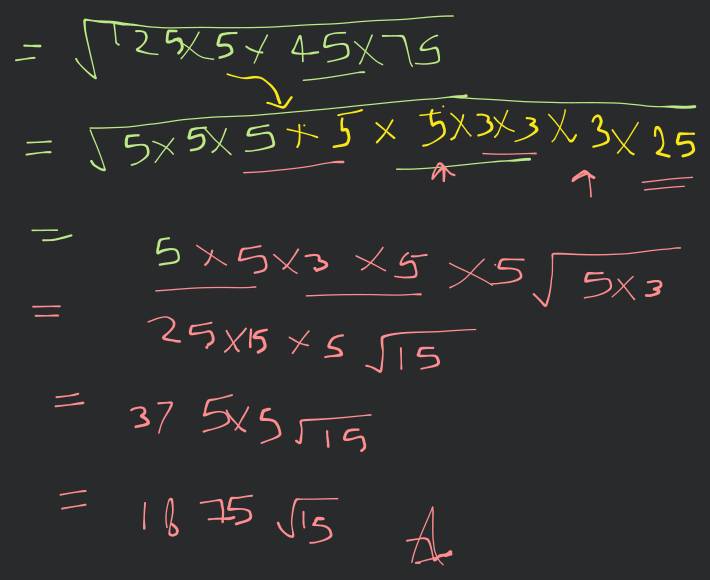 = √125×5×45×75
= √5×5×5×5×5×3×3×3×25
= 5×5×3×5×5√5×3
= 25×15×5√15
= 375×5√15
= 1875√15 A